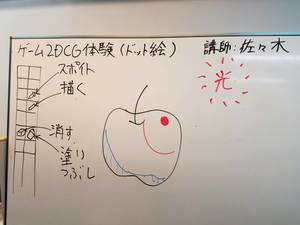 ゲーム2DCG体験(ドット絵)
講師:佐々木
スポイト
描く
消す
塗り
つぶし
光